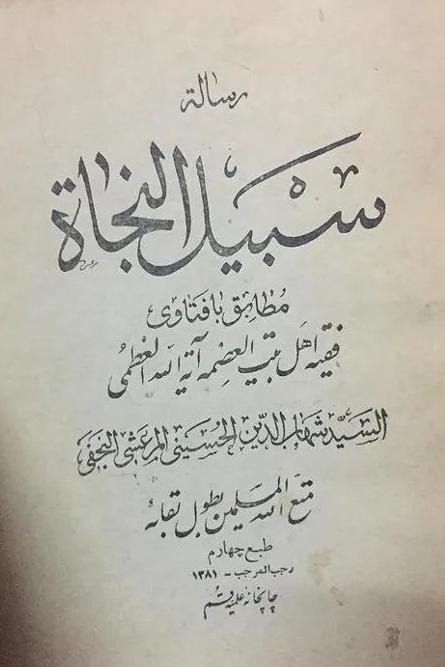 رسالة
سبیل النجاة
مطابق با فتاوی
فقیه اهل بیت العصمه آیة الله العظمی
السید شهاب الدین الحسینی المرعشی النجفی
متع الله المسلمین بطول بقائه
طبع چهارم
رجب المرجب - ۱۳۸۱
چاپخانه علمیه قم